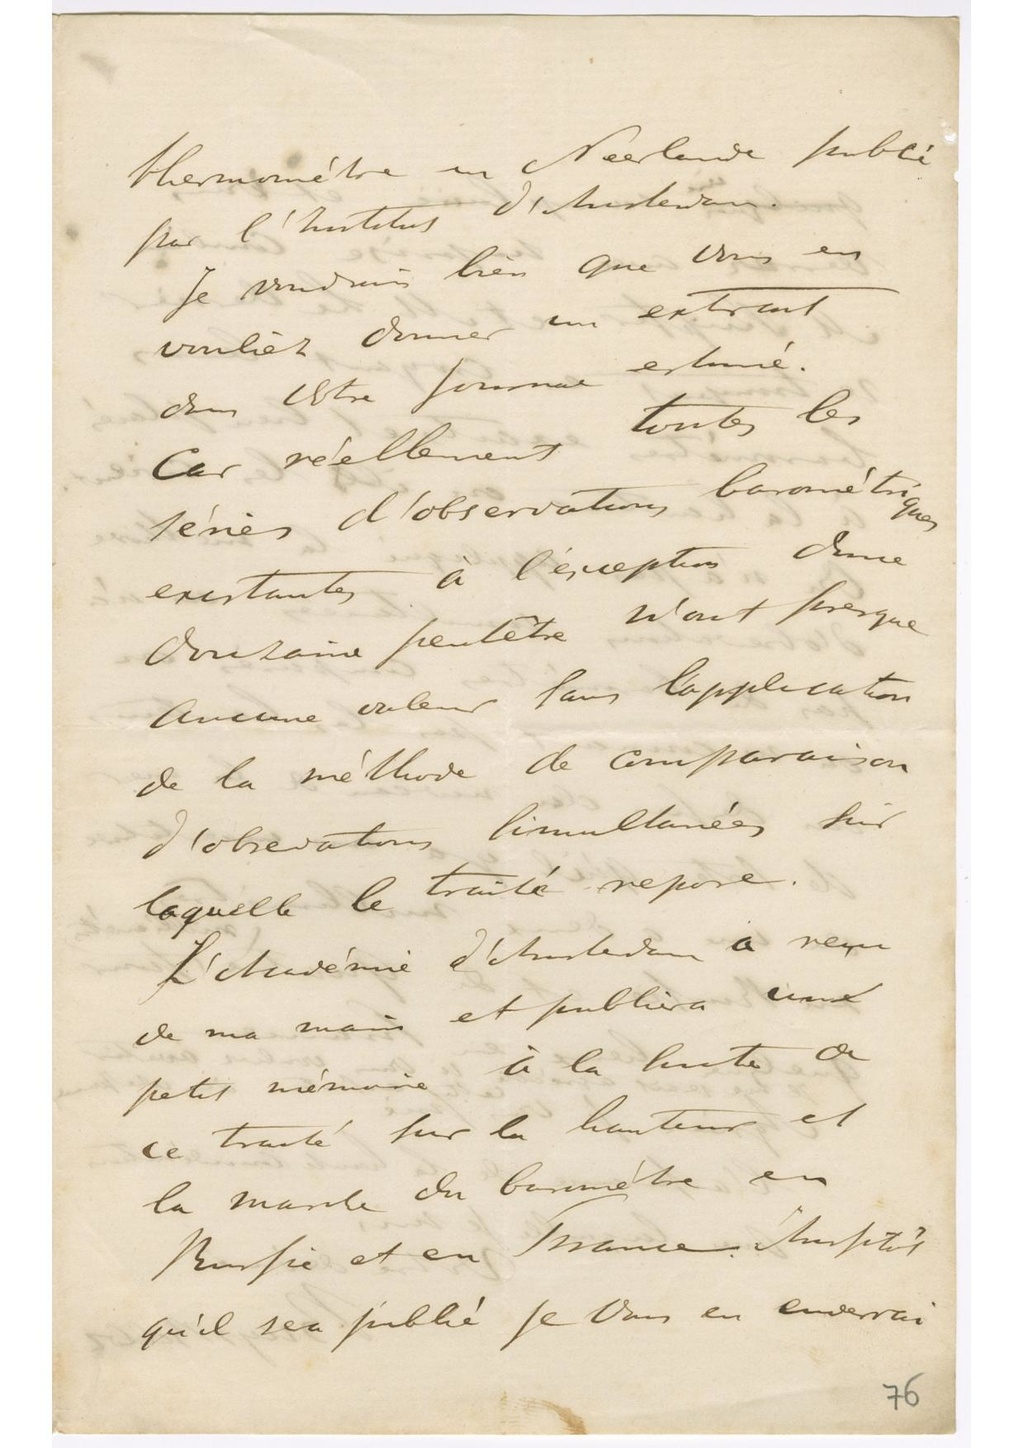 thermomètre en Néerlande publié
par l'Institut d'Amsterdam.
Je voudrais bien que vous en
vouliez donner un extrait
dans votre journal estimé.
Car réellement toutes les
séries d'observations barométriques
existantes à l'exception d'une
douzaine peutêtre n'ont presque
aucune valeur sans l'application
de la méthode de comparaison
d'observations simultanées sur
laquelle le traité repose.
L'Académie d'Amsterdam a reçu
de ma main et publiera une
petit mémoire à la suite de
ce traité sur la hauteur et
la marche du baromètre en
Russie et en France. Aussitôt
qu'il sera publié je vous en enverrai
76